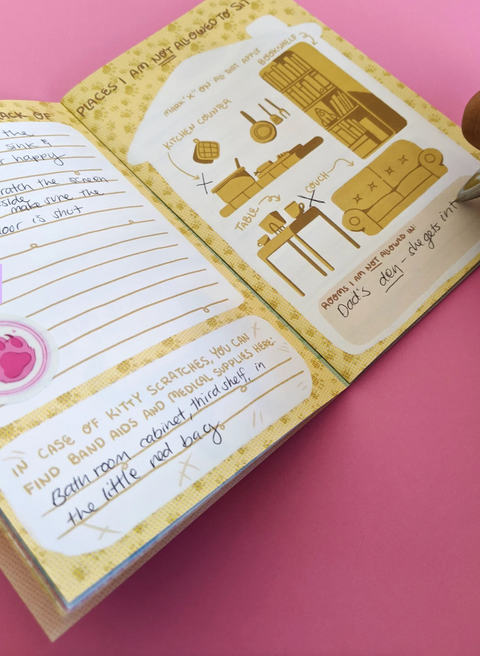 ACK OF
the
sink &
r happy
ratch the screen
eside
make sure the
oor is shut
IN CASE OF KITTY SCRATCHES, YOU CAN
FIND BAND AIDS AND MEDICAL SUPPLIES HERE:
Bathroom cabinet, third shelf, in
the little red bag
PLACES I AM NOT ALLOWED TO SIT
MARK "X" ON ALL THAT APPLY
BOOKSHELF
KITCHEN COUNTER
X
TABLE
X
COUCH
ROOMS I AM NOT ALLOWED IN:
Dad's den - she gets int